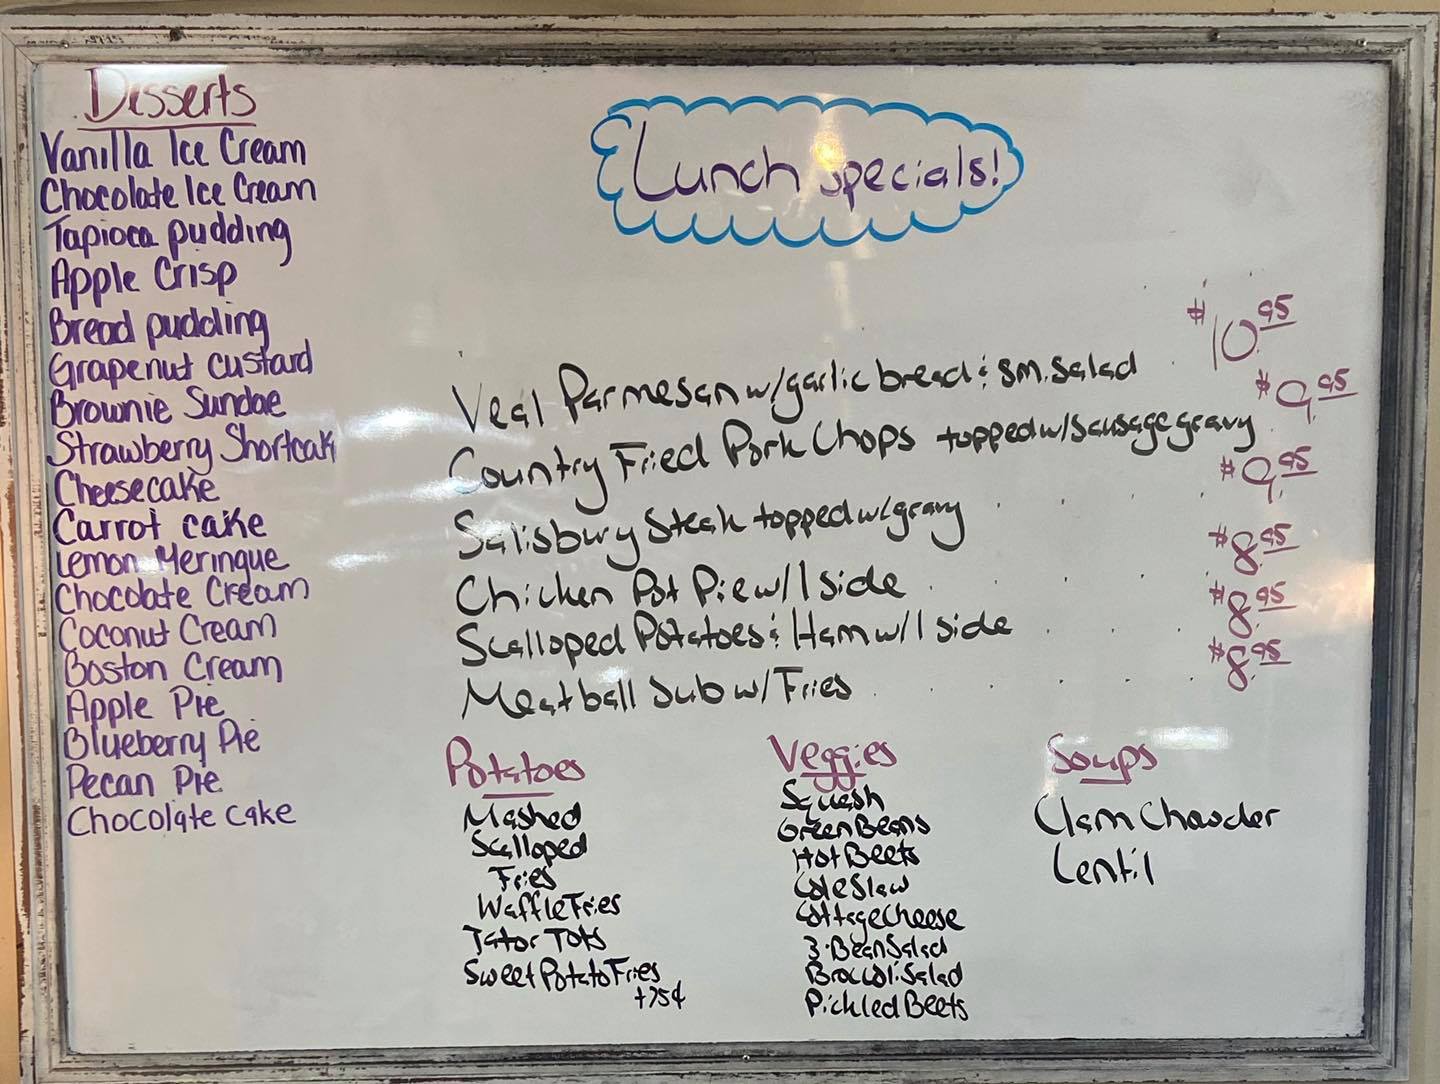 Desserts
Vanilla Ice Cream
Chocolate Ice Cream
Tapioca pudding
Apple Crisp
Bread pudding
Grapenut custard
Brownie Sundae
Strawberry Shortcak
Cheesecake
Carrot cake
Lemon Meringue
Chocolate Cream
Coconut Cream
Boston Cream
Apple Pie
Blueberry Pie
Pecan Pie
Chocolate cake
Lunch Specials!
Veal Parmesan w/garlic bread & sm. salad $10.95
Country Fried Pork Chops topped w/sausage gravy $9.95
Salisbury Steak topped w/gravy $9.95
Chicken Pot Pie w/1 side $8.95
Scalloped Potatoes & Ham w/1 side $8.95
Meatball Sub w/ Fries $8.95
Potatoes
Mashed
Scalloped
Fries
Waffle Fries
Tator Tots
Sweet Potato Fries
+75¢
Veggies
Squash
Green Beans
Hot Beets
Cole Slaw
Cottage Cheese
3-Bean Salad
Broccoli Salad
Pickled Beets
Soups
Clam Chowder
Lentil